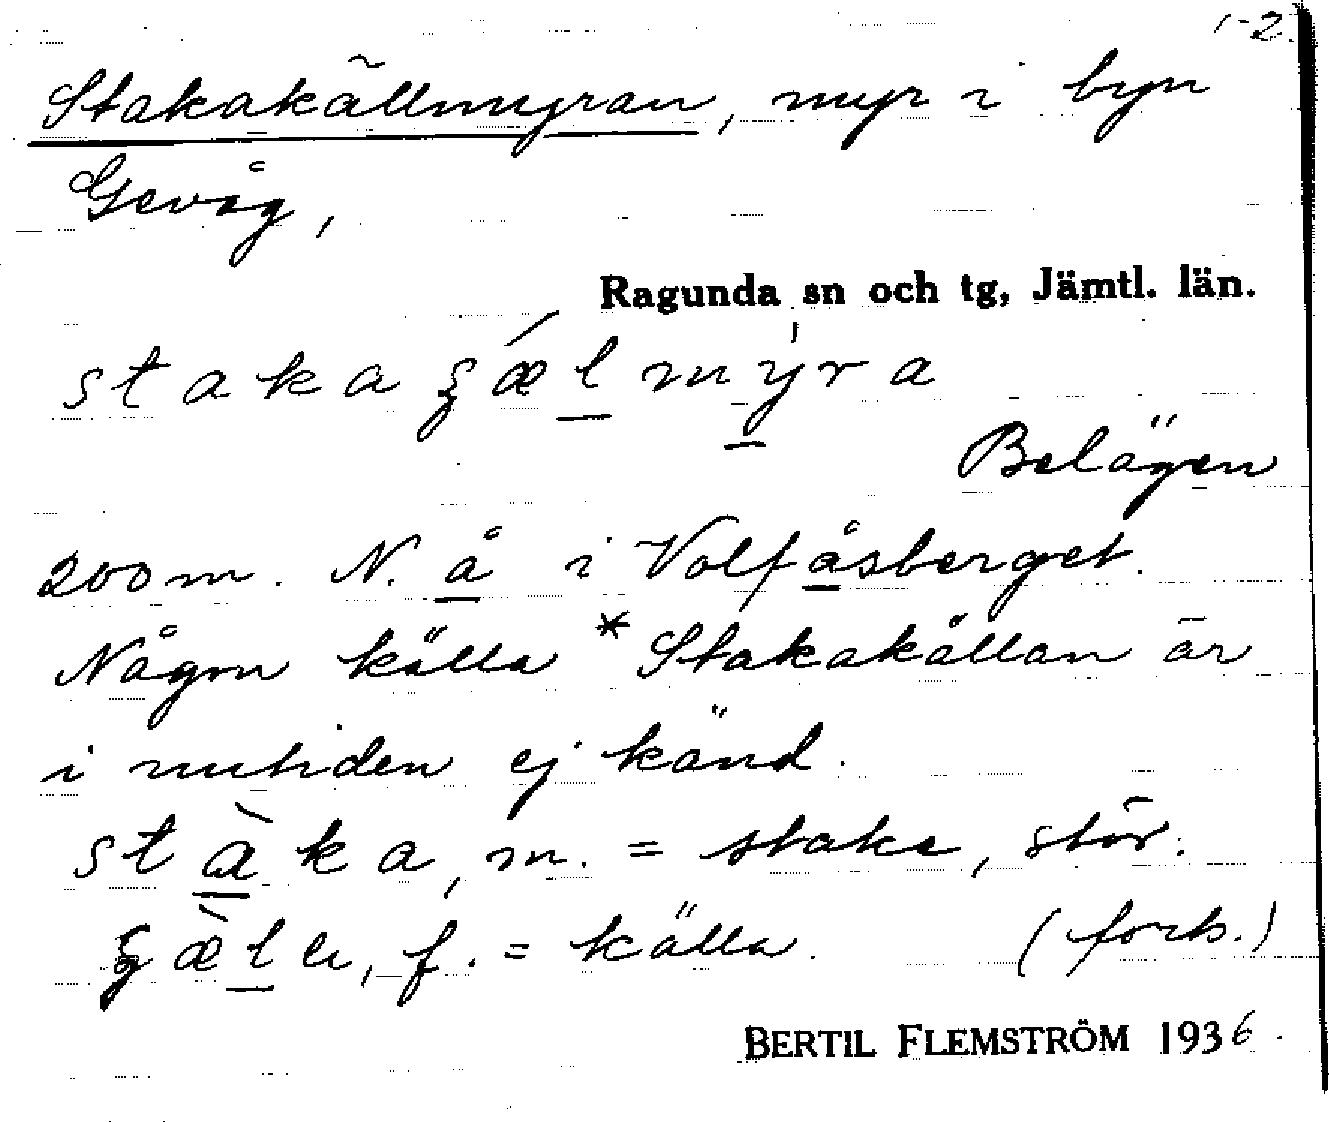 1-2.
Stakakällmyran, myr i byn
Gevåg,
Ragunda sn och tg, Jämtl. län.
stakaʂælmyra
Belägen
200 m. N. å i Volfåsberget.
Någon källa *Stakakällan är
i nutiden ej känd.
stàka, m. = stake, stör.
f. = källa. (forts.)
BERTIL FLEMSTRÖM 1936.